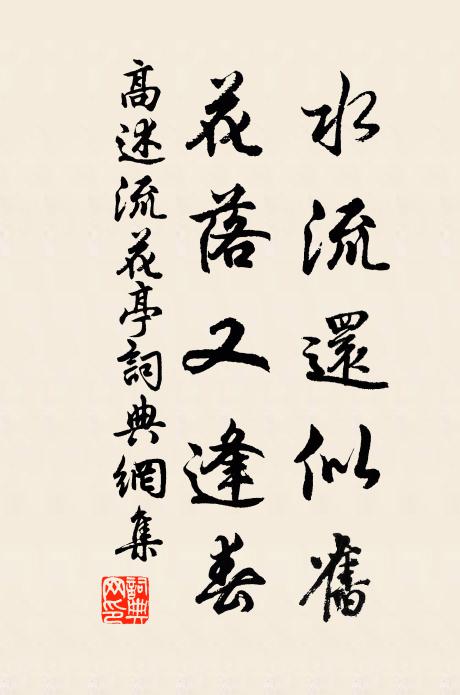 水流還似舊
花落又逢春
高述流花亭詞典網集
詞典網印